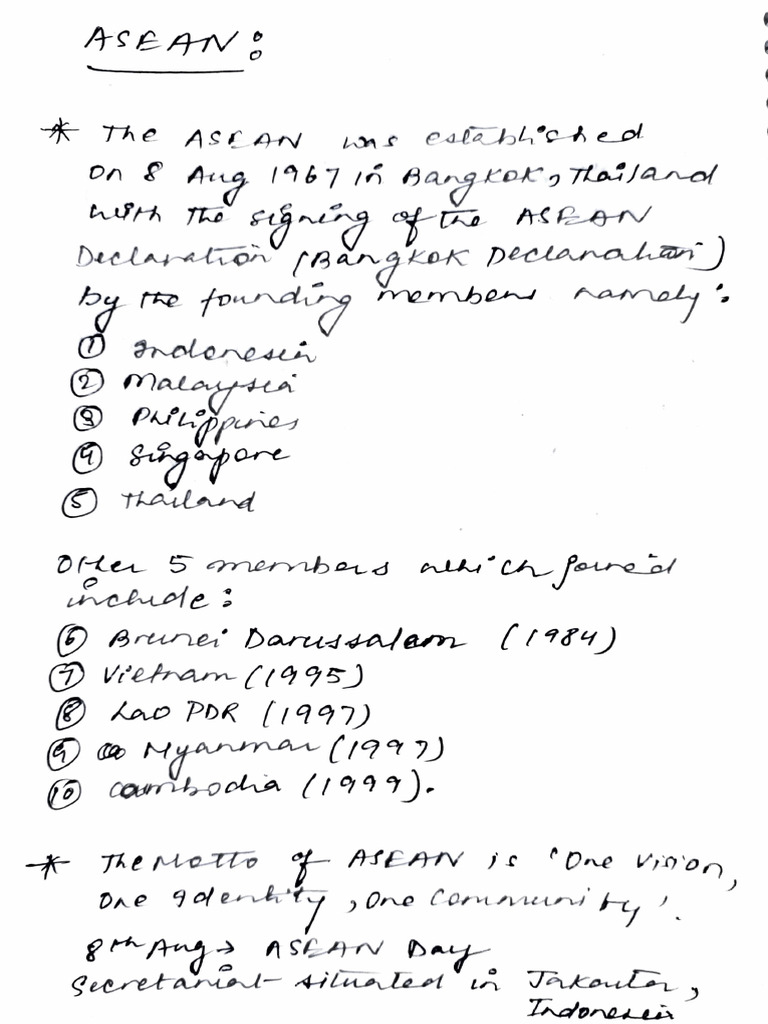 ASEAN:
* The ASEAN was established
on 8 Aug 1967 in Bangkok, Thailand
with the signing of the ASEAN
Declaration (Bangkok Declaration)
by the founding members namely:
① Indonesia
② Malaysia
③ Philippines
④ Singapore
⑤ Thailand
Other 5 members which joined
include:
⑥ Brunei Darussalam (1984)
⑦ Vietnam (1995)
⑧ Lao PDR (1997)
⑨ Myanmar (1997)
⑩ Cambodia (1999).
* The Motto of ASEAN is 'One Vision,
One Identity, One Community'.
8th Aug → ASEAN Day
Secretariat situated in Jakarta,
Indonesia